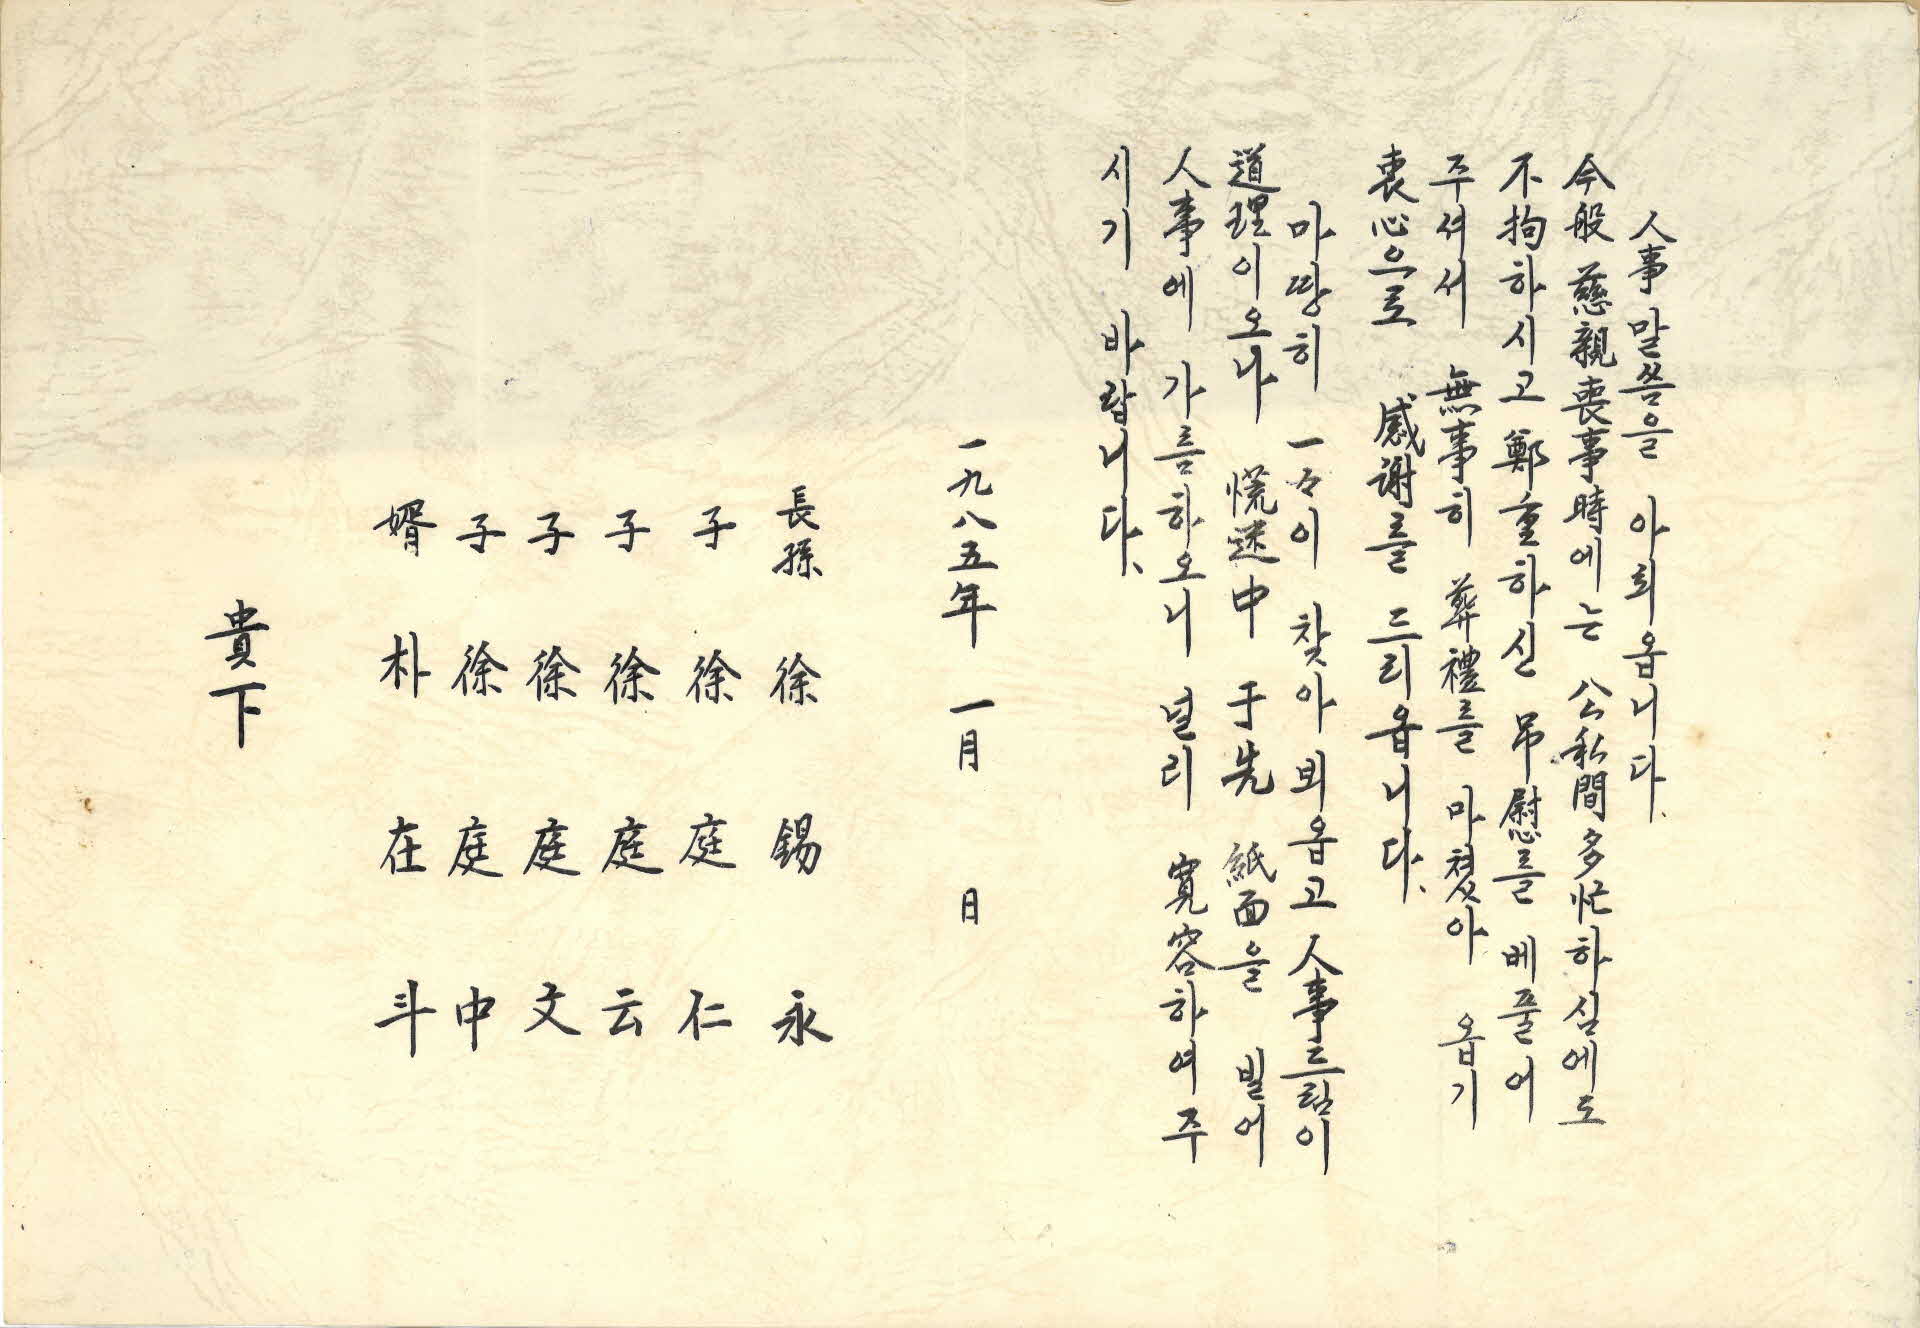 人事 말씀을 아뢰옵니다.
今般 慈親喪事時에는 公私間多忙하심에도
不拘하시고 鄭重하신 吊慰를 베풀어
주셔서 無事히 葬禮를 마쳤아옵기
衷心으로 感謝를 드리옵니다.
마땅히 一々이 찾아 뵈옵고 人事드림이
道理이오나 慌迷中 于先 紙面을 빌어
人事에 가름하오니 널리 寬容하여 주
시기 바랍니다.
一九八五年 一月 日
長孫 徐錫永
子 徐庭仁
子 徐庭云
子 徐庭文
子 徐庭中
婿 朴在斗
貴下